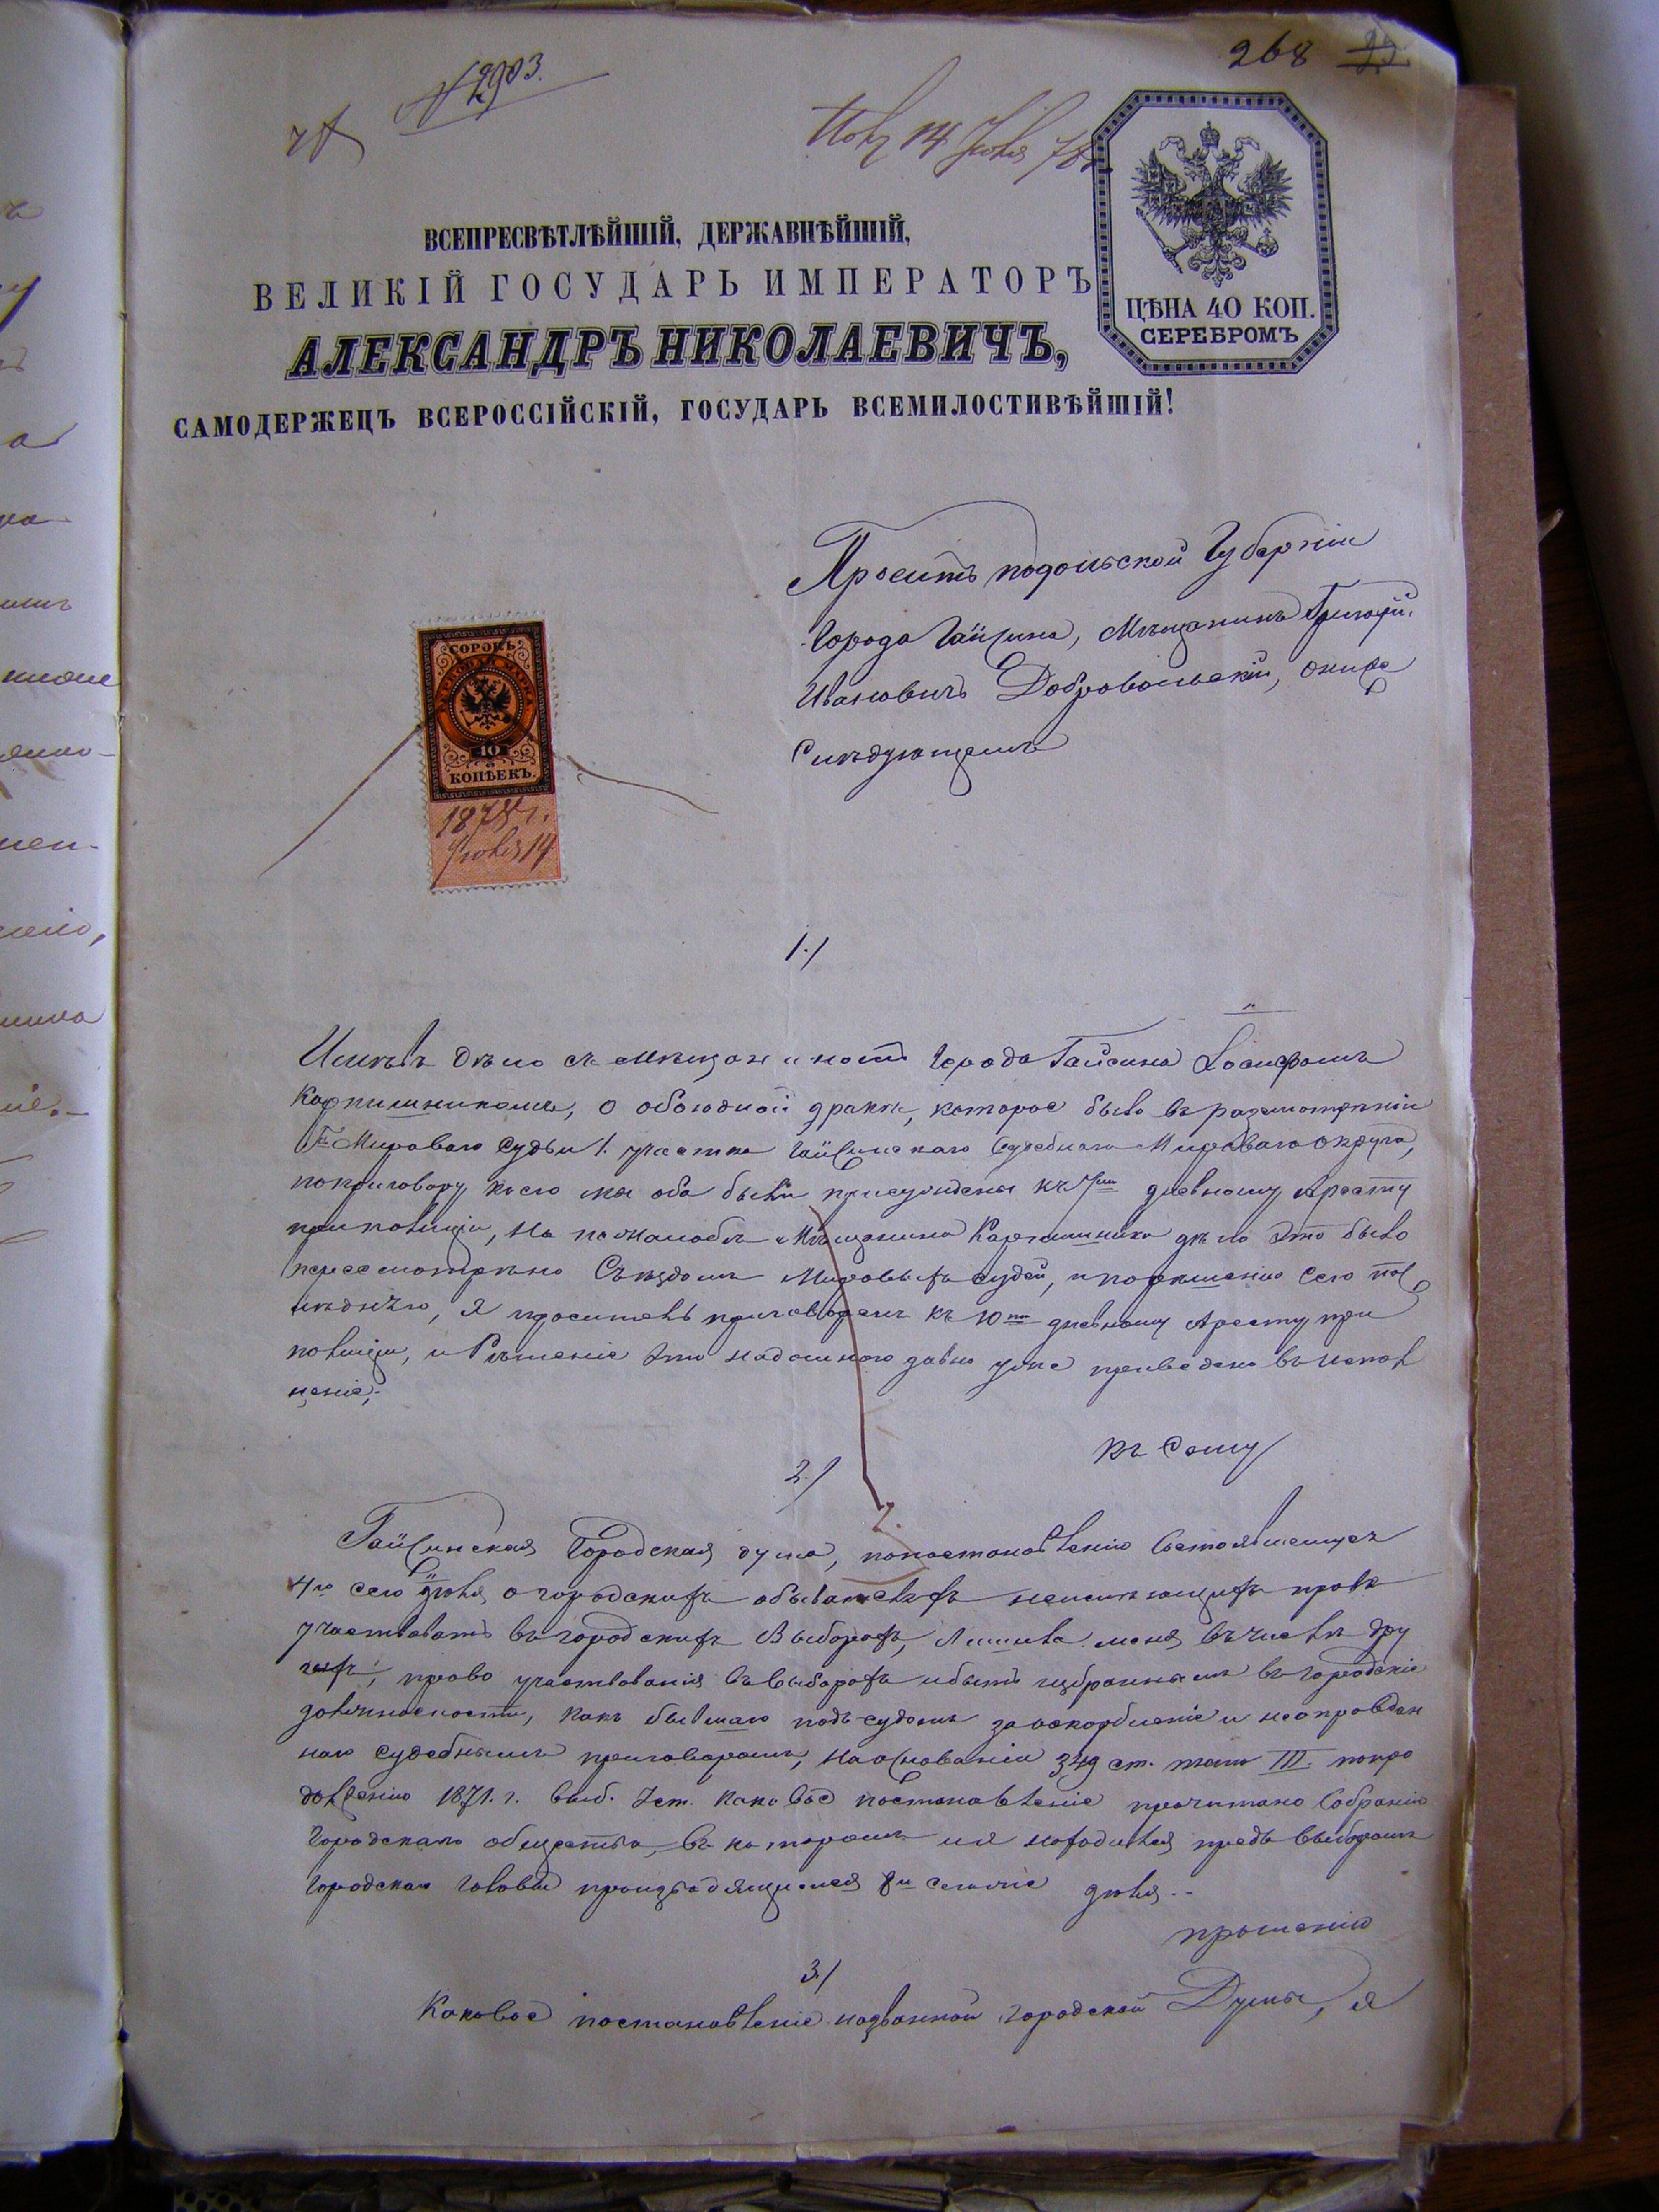 268 25.
№ 2903.
Пол 14 Іюля 78
ВСЕПРЕСВѢТЛѢЙШІЙ, ДЕРЖАВНѢЙШІЙ,
ВЕЛИКІЙ ГОСУДАРЬ ИМПЕРАТОРЪ
АЛЕКСАНДРЪ НИКОЛАЕВИЧЪ,
САМОДЕРЖЕЦЪ ВСЕРОССІЙСКІЙ, ГОСУДАРЬ ВСЕМИЛОСТИВѢЙШІЙ!
ЦѢНА 40 КОП.
СЕРЕБРОМЪ
Проситъ подольской Губерніи
Города Гайсина, Мѣщанинъ Григорій
Ивановичъ Добровольскій, о ниже
Слѣдующемъ
СОРОКЪ
40
КОПѢЕКЪ.
1878 г.
Іюля 14
1./
Имѣвъ дѣло съ мѣщаниномъ города Гайсина Іосифомъ
Карпишникомъ, о обоюдной дракѣ, которое было въ разсмотрѣніи
Г. Мироваго Судьи 1. участка Гайсинскаго Судебнаго Мироваго округа,
поприговору коего мы оба были присуждены къ 7ми дневному аресту
приполиціи, На пожалобѣ Мѣщанина Карпишника дѣло это было
пересмотрѣно Съѣздомъ Мировыхъ судей, и порѣшенію сего пос
лѣднего, я проситель приговоренъ къ 10ти дневному Аресту при
полиціи, и Рѣшеніе это надомною давно уже приведено въ испол
неніе;
Къ Сему
2./
Гайсинская Городская дума, попостановленію Состоявшемуся
4го сего Іюля, о городскихъ обывателяхъ неимѣющихъ права
участвовать въ городскихъ Выборахъ, Лишила меня въ числѣ дру
гихъ, право участвованія въ выборахъ и быть избраннымъ въ городскіе
должности, какъ бывшаго подъ судомъ за оскорбленіе и неоправдан
наго судебнымъ приговоромъ, на основаніи 349 ст. тома III. попро
долженію 1871. г. выб. Уст. Каковое постановленіе прочитано Собранію
Городскаго общества, въ которомъ и я находился предъ выборомъ
городскаго головы производящимся 8го сего Іюля..
прошенію
3./
Каковое постановленіе названной городской Думы, я